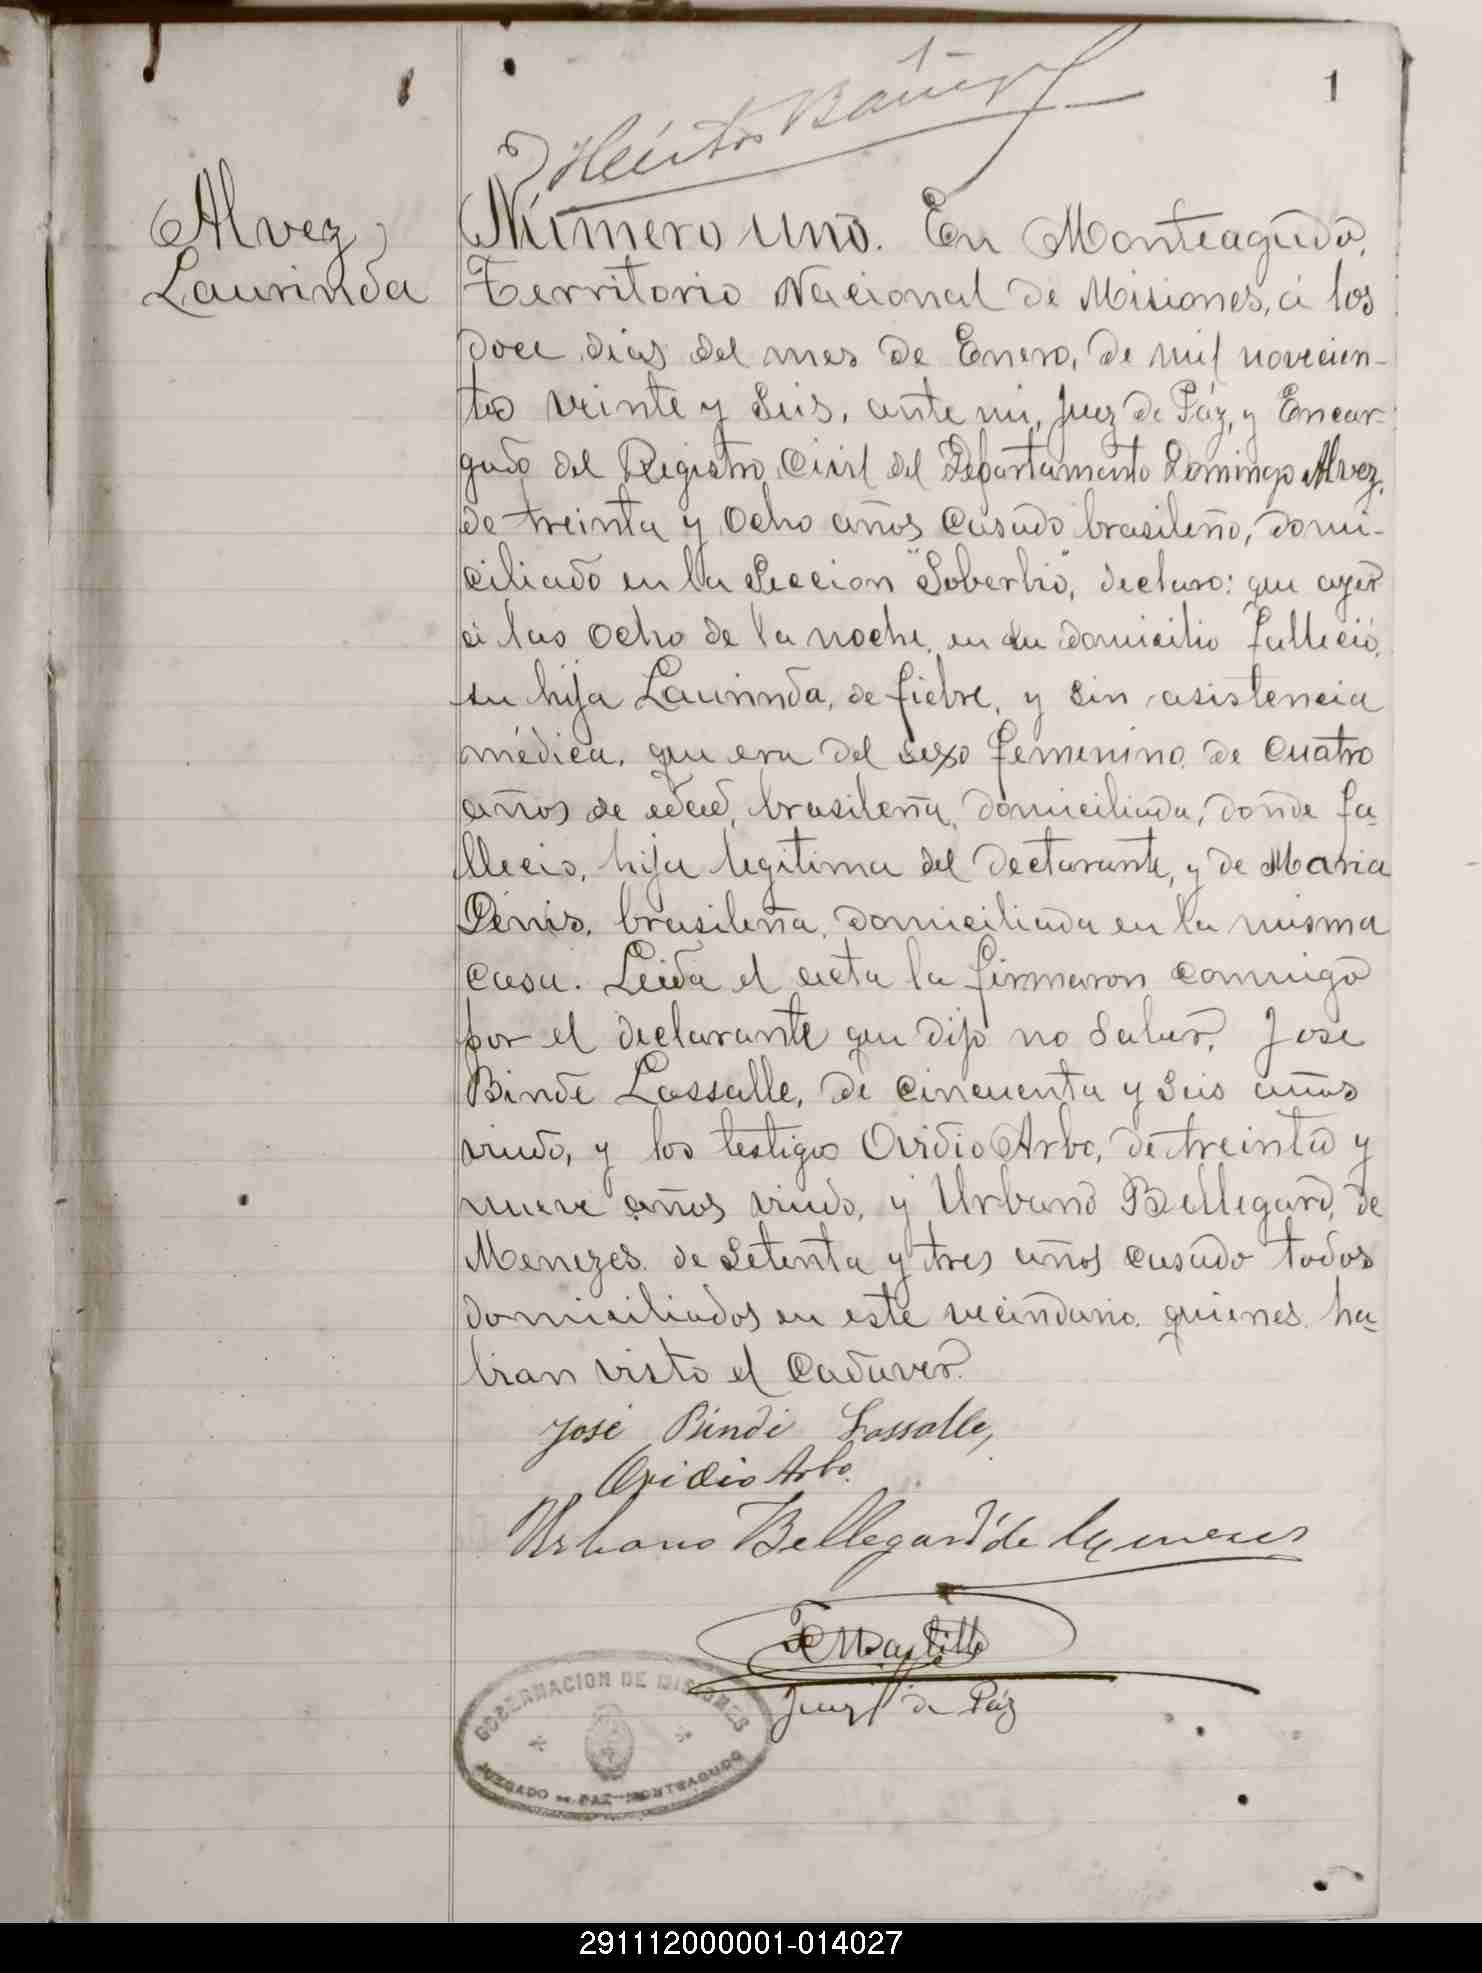 1
Héctor Báez
Alvez,
Laurinda
Número uno. En Monteagudo,
Territorio Nacional de Misiones, á los
doce dias del mes de Enero, de mil novecien-
tos veinte y seis, ante mi, Juez de Páz, y Encar-
gado del Registro Civil del Departamento Domingo Alvez,
de treinta y ocho años casado brasileño, domi-
ciliado en la Seccion "Soberbio", declaro: que ayer
á las ocho de la noche, en su domicilio falleció,
su hija Laurinda, de fiebre, y sin asistencia
médica, que era del sexo femenino, de cuatro
años de edad, brasileña, domiciliada, donde fa-
llecio, hija legitima del declarante, y de Maria
Denis, brasileña, domiciliada en la misma
casa. Leida el acta la firmaron conmigo
por el declarante que dijo no saber, Jose
Binde Lassalle, de cincuenta y seis años
viudo, y los testigos Ovidio Arbo, de treinta y
nueve años viudo, y Urbano Bellegard, de
Menezes de setenta y tres años casado todos
domiciliados en este vecindario quienes ha-
bian visto el cadaver.
José Binde Lassalle,
Ovidio Arbo.
Urbano Bellegard de Menezes
Juez de Páz
GOBERNACION DE MISIONES
JUZGADO DE PAZ-MONTEAGUDO
291112000001-014027